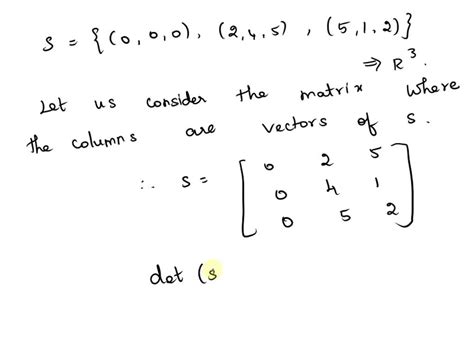 S = {(0,0,0), (2,4,5), (5,1,2)}
⇒ R³.
Let us consider the matrix where
the columns are vectors of S.
∴ S = [ 0 2 5
0 4 1
0 5 2 ]
det (s